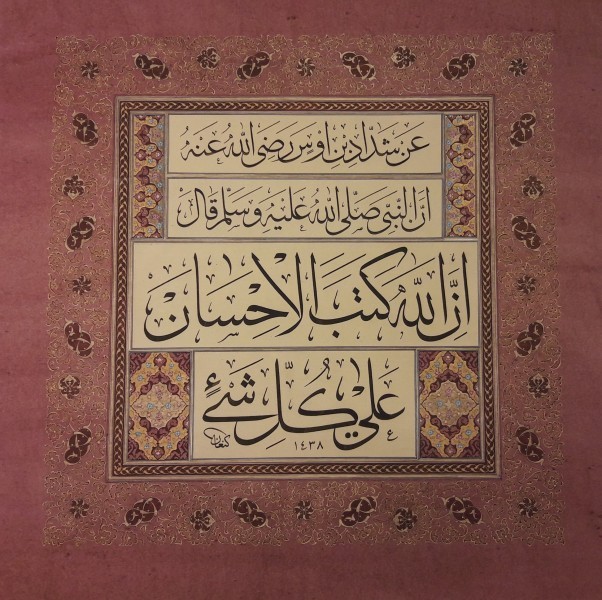 عَنْ شَدَّادِ بْنِ اَوْسٍ رَضِىَ اللّٰهُ عَنْهُ
اَنَّ النَّبِىَّ صَلَّى اللّٰهُ عَلَيْهِ وَسَلَّمَ قَالَ
اِنَّ اللّٰهَ كَتَبَ الْاِحْسَانَ
عَلٰى كُلِّ شَىْءٍ
١٤٣٨